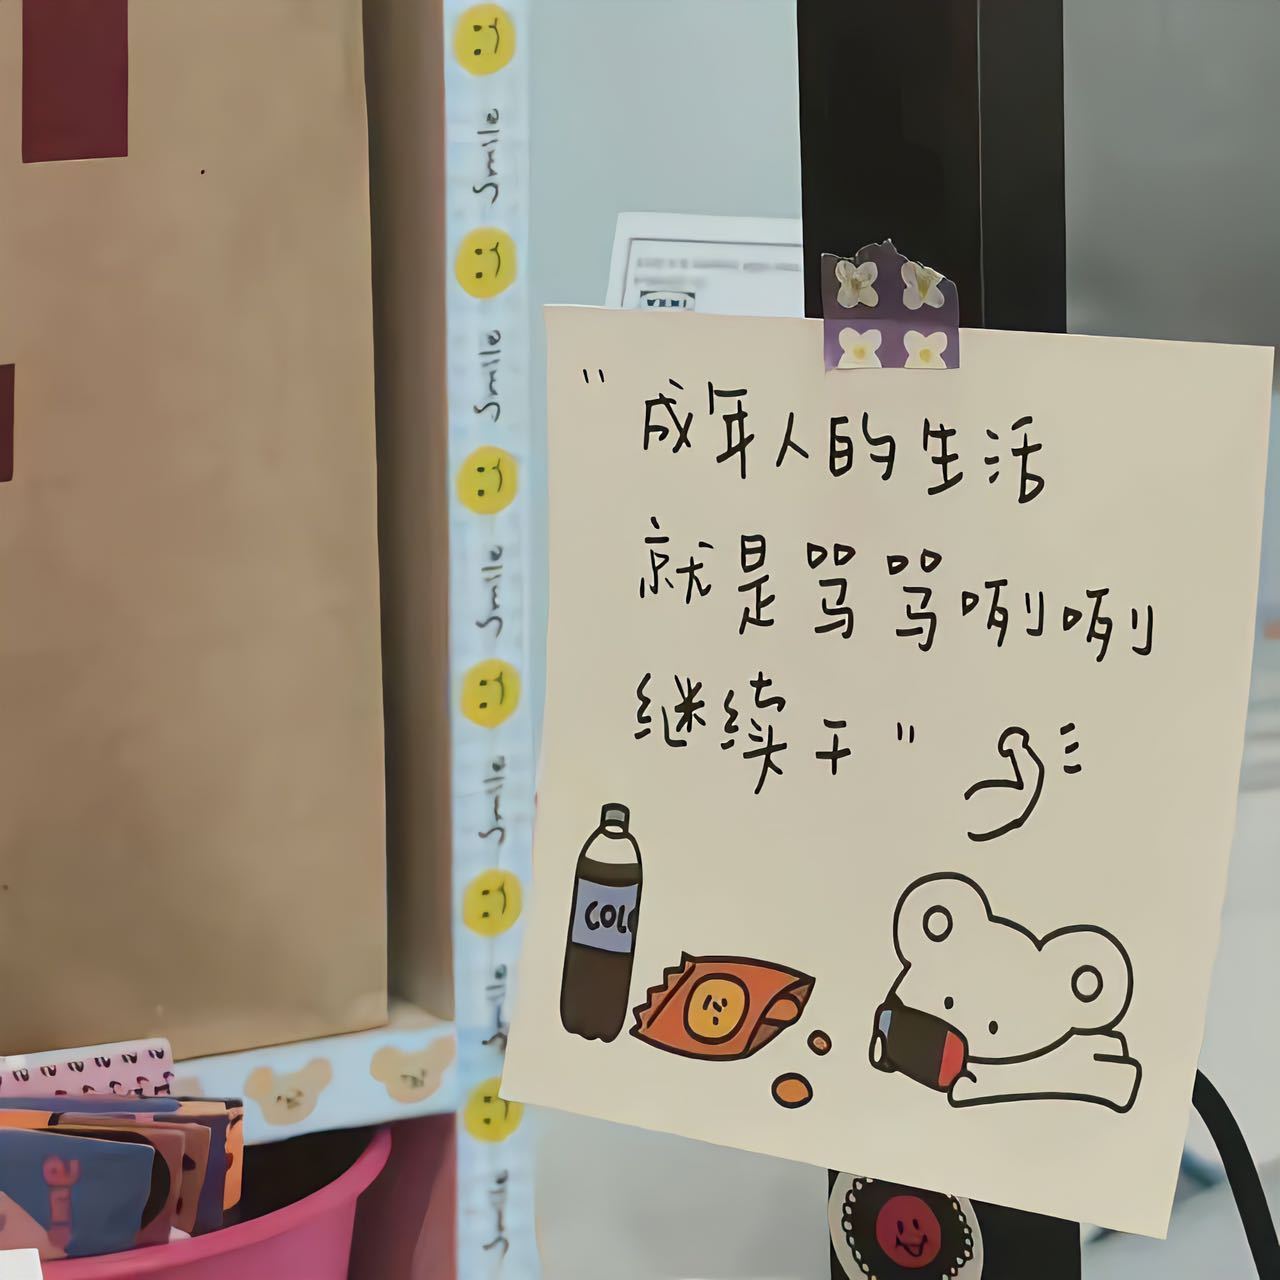 "成年人的生活
就是骂骂咧咧
继续干"
COLO
Smile
Smile
Smile
Smile
Smile
Smile